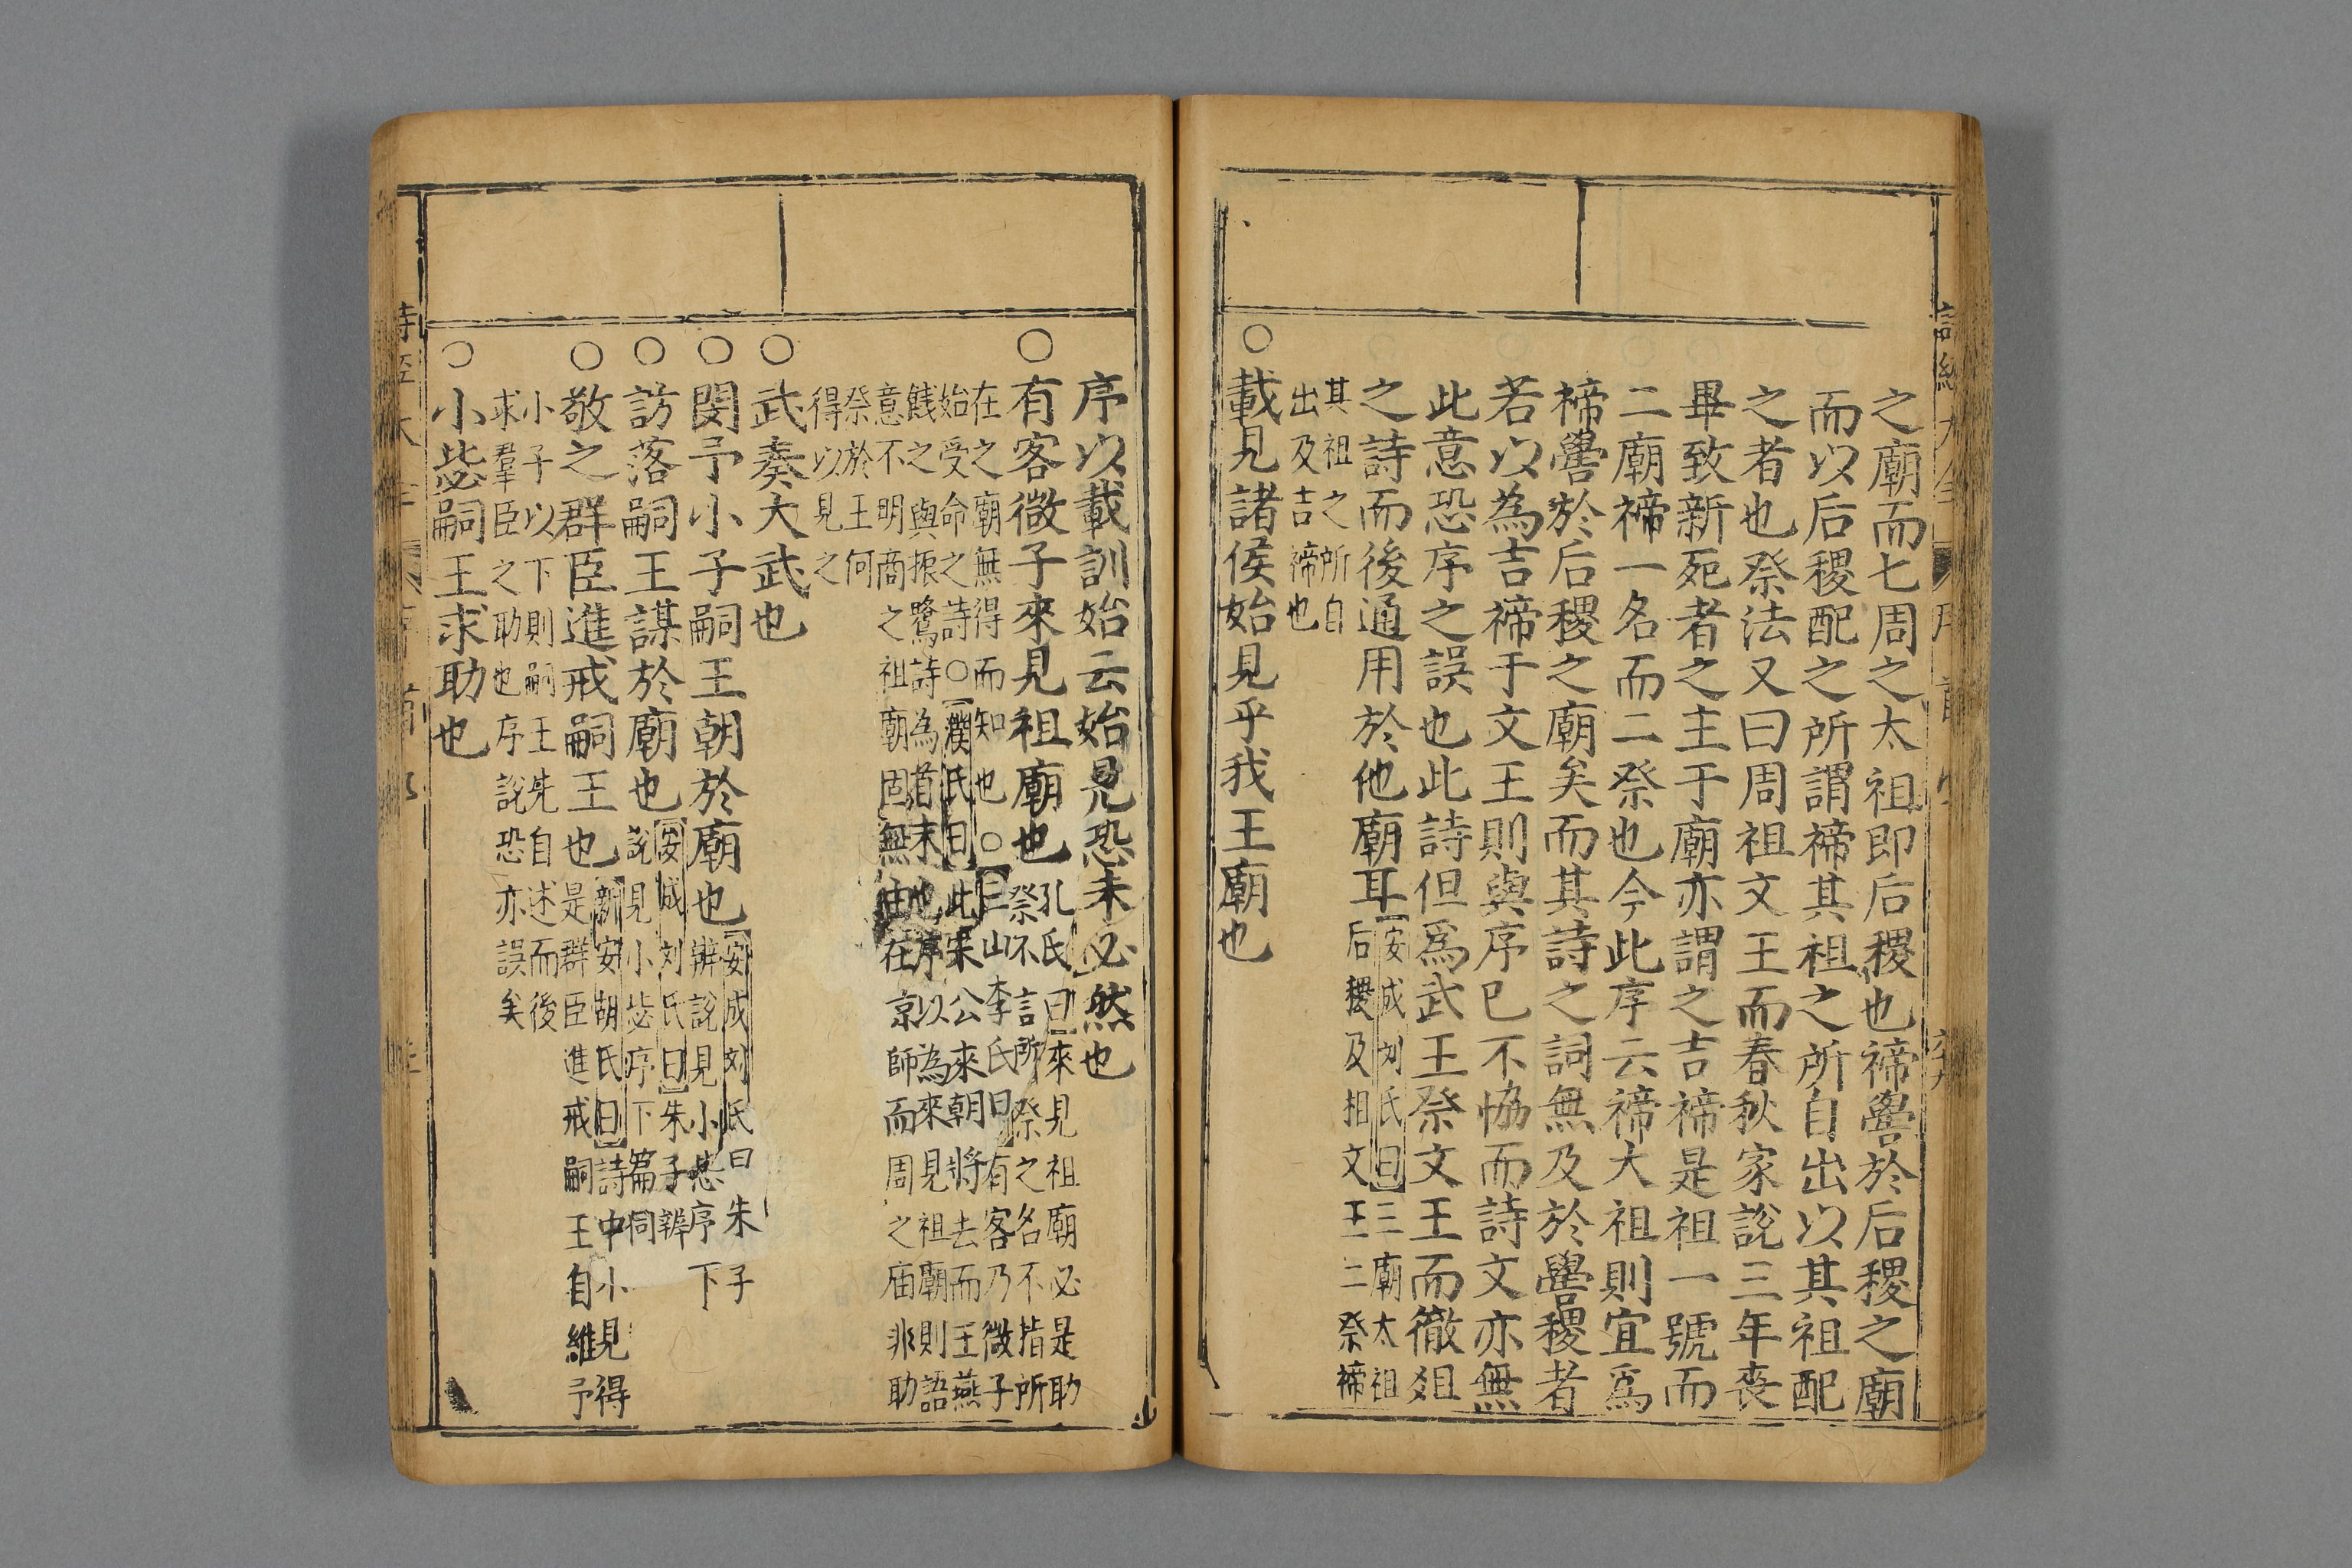 之廟而七周之太祖即后稷也禘嚳於后稷之廟
而以后稷配之所謂禘其祖之所自出以其祖配
之者也祭法又曰周祖文王而春秋家說三年喪
畢致新死者之主于廟亦謂之吉禘是祖一號而
二廟禘一名而二祭也今此序云禘大祖則宜爲
禘嚳於后稷之廟矣而其詩之詞無及於嚳稷者
若以為吉禘于文王則與序已不恊而詩文亦無
此意恐序之誤也此詩但爲武王祭文王而徹俎
之詩而後通用於他廟耳
安成刘氏曰三廟太祖
后稷及相文王二祭禘
其祖之所自
出及吉禘也
○載見諸侯始見乎我王廟也
序以載訓始云始見恐未必然也
○有客微子來見祖廟也
孔氏曰來見祖廟必是助
祭不言所祭之名不指所
在之廟無得而知也○三山李氏曰有客乃微子
始受命之詩○濮氏曰此宋公來朝將去而王燕
餞之與振鷺詩為首末也序以為來見祖廟則語
意不明商之祖廟固無由在京師而周之庙非助
祭於王何
得以見之
○武奏大武也
○閔予小子嗣王朝於廟也
安成刘氏曰朱子
辨說見小毖序下
○訪落嗣王謀於廟也
安成刘氏曰朱子辨
說見小毖序下篇同
○敬之群臣進戒嗣王也
新安胡氏曰詩中小見得
是群臣進戒嗣王自維予
小子以下則嗣王先自述而後
求羣臣之助也序說恐亦誤矣
○小毖嗣王求助也